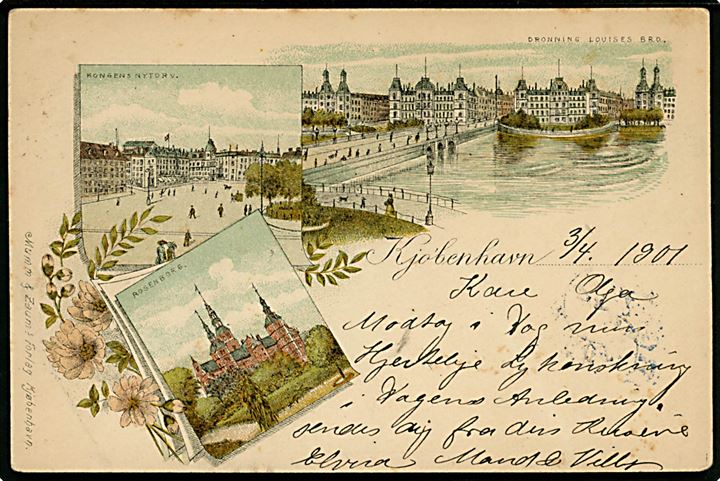 DRONNING LOUISES BRO.
KONGENS NYTORV.
ROSENBORG.
Kjøbenhavn 3/4 1901
Kære Olga
Modtag i Dag min
Hjertelige Lykønskning
i Dagens Anledning,
sendes dig fra din Kusine
Elvira
Forlag Kjøbenhavn.